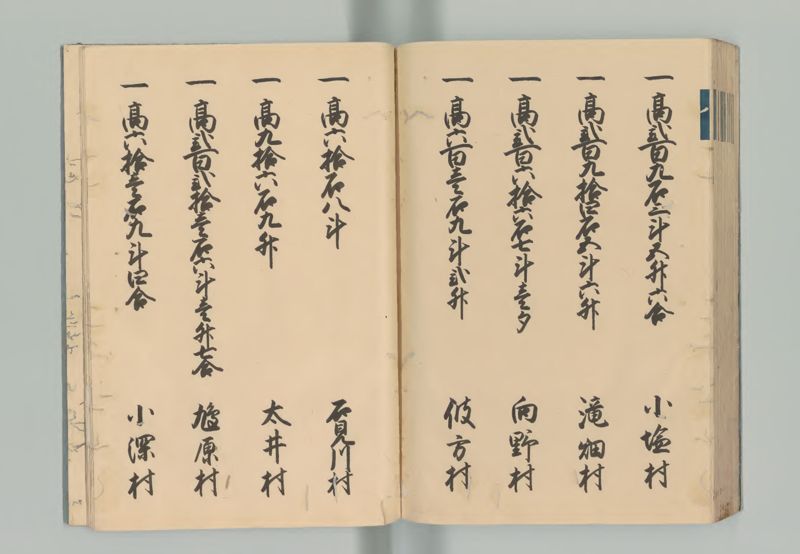 一 高弐百九石三斗五升六合 小塩村
一 高弐百九拾四石五斗六升 滝畑村
一 高弐百六拾六石七斗壱夕 向野村
一 高六百壱石九斗弐升 伎方村
一 高六拾石八斗 石見川村
一 高九拾六石九升 太井村
一 高弐百弐拾壱石六斗壱升七合 鳩原村
一 高六拾壱石九斗四合 小深村